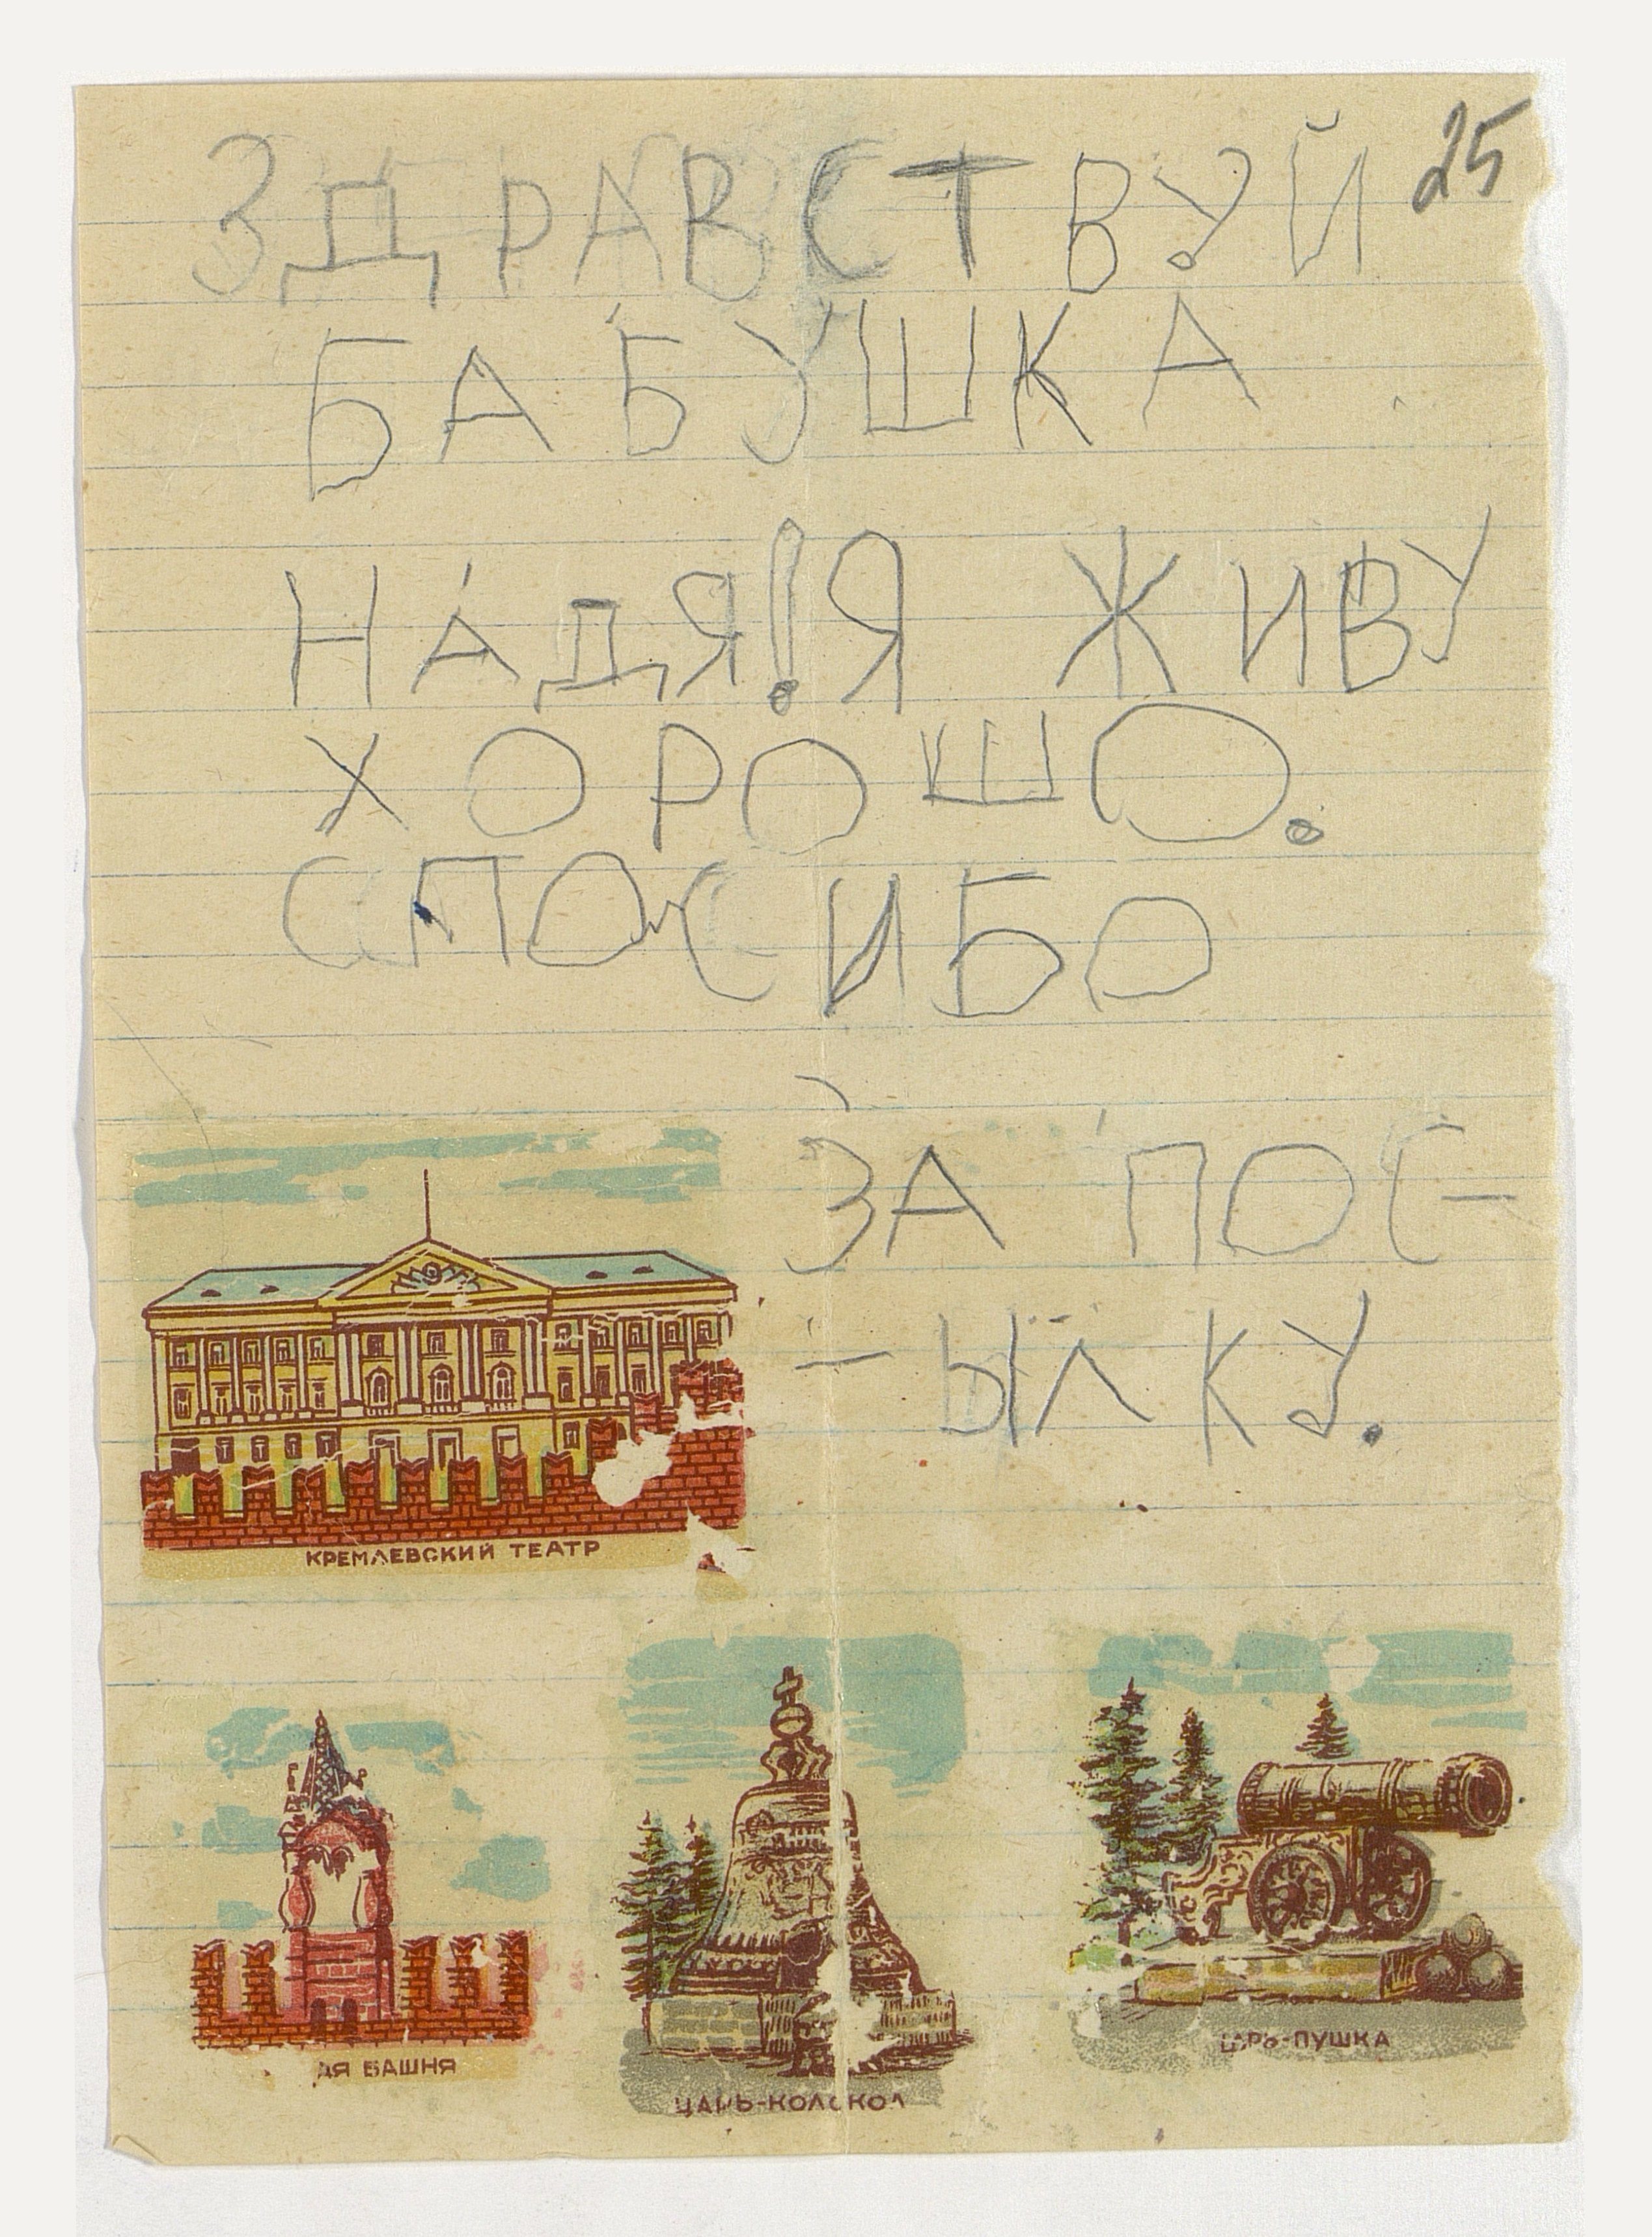 ЗДРАВСТВУЙ 25
БАБУШКА
НАДЯ! Я ЖИВУ
ХОРОШО.
СПОСИБО
ЗА ПОС-
-ЫЛКУ.
КРЕМЛЕВСКИЙ ТЕАТР
АЯ БАШНЯ
ЦАРЬ-КОЛОКОЛ
ЦАРЬ-ПУШКА